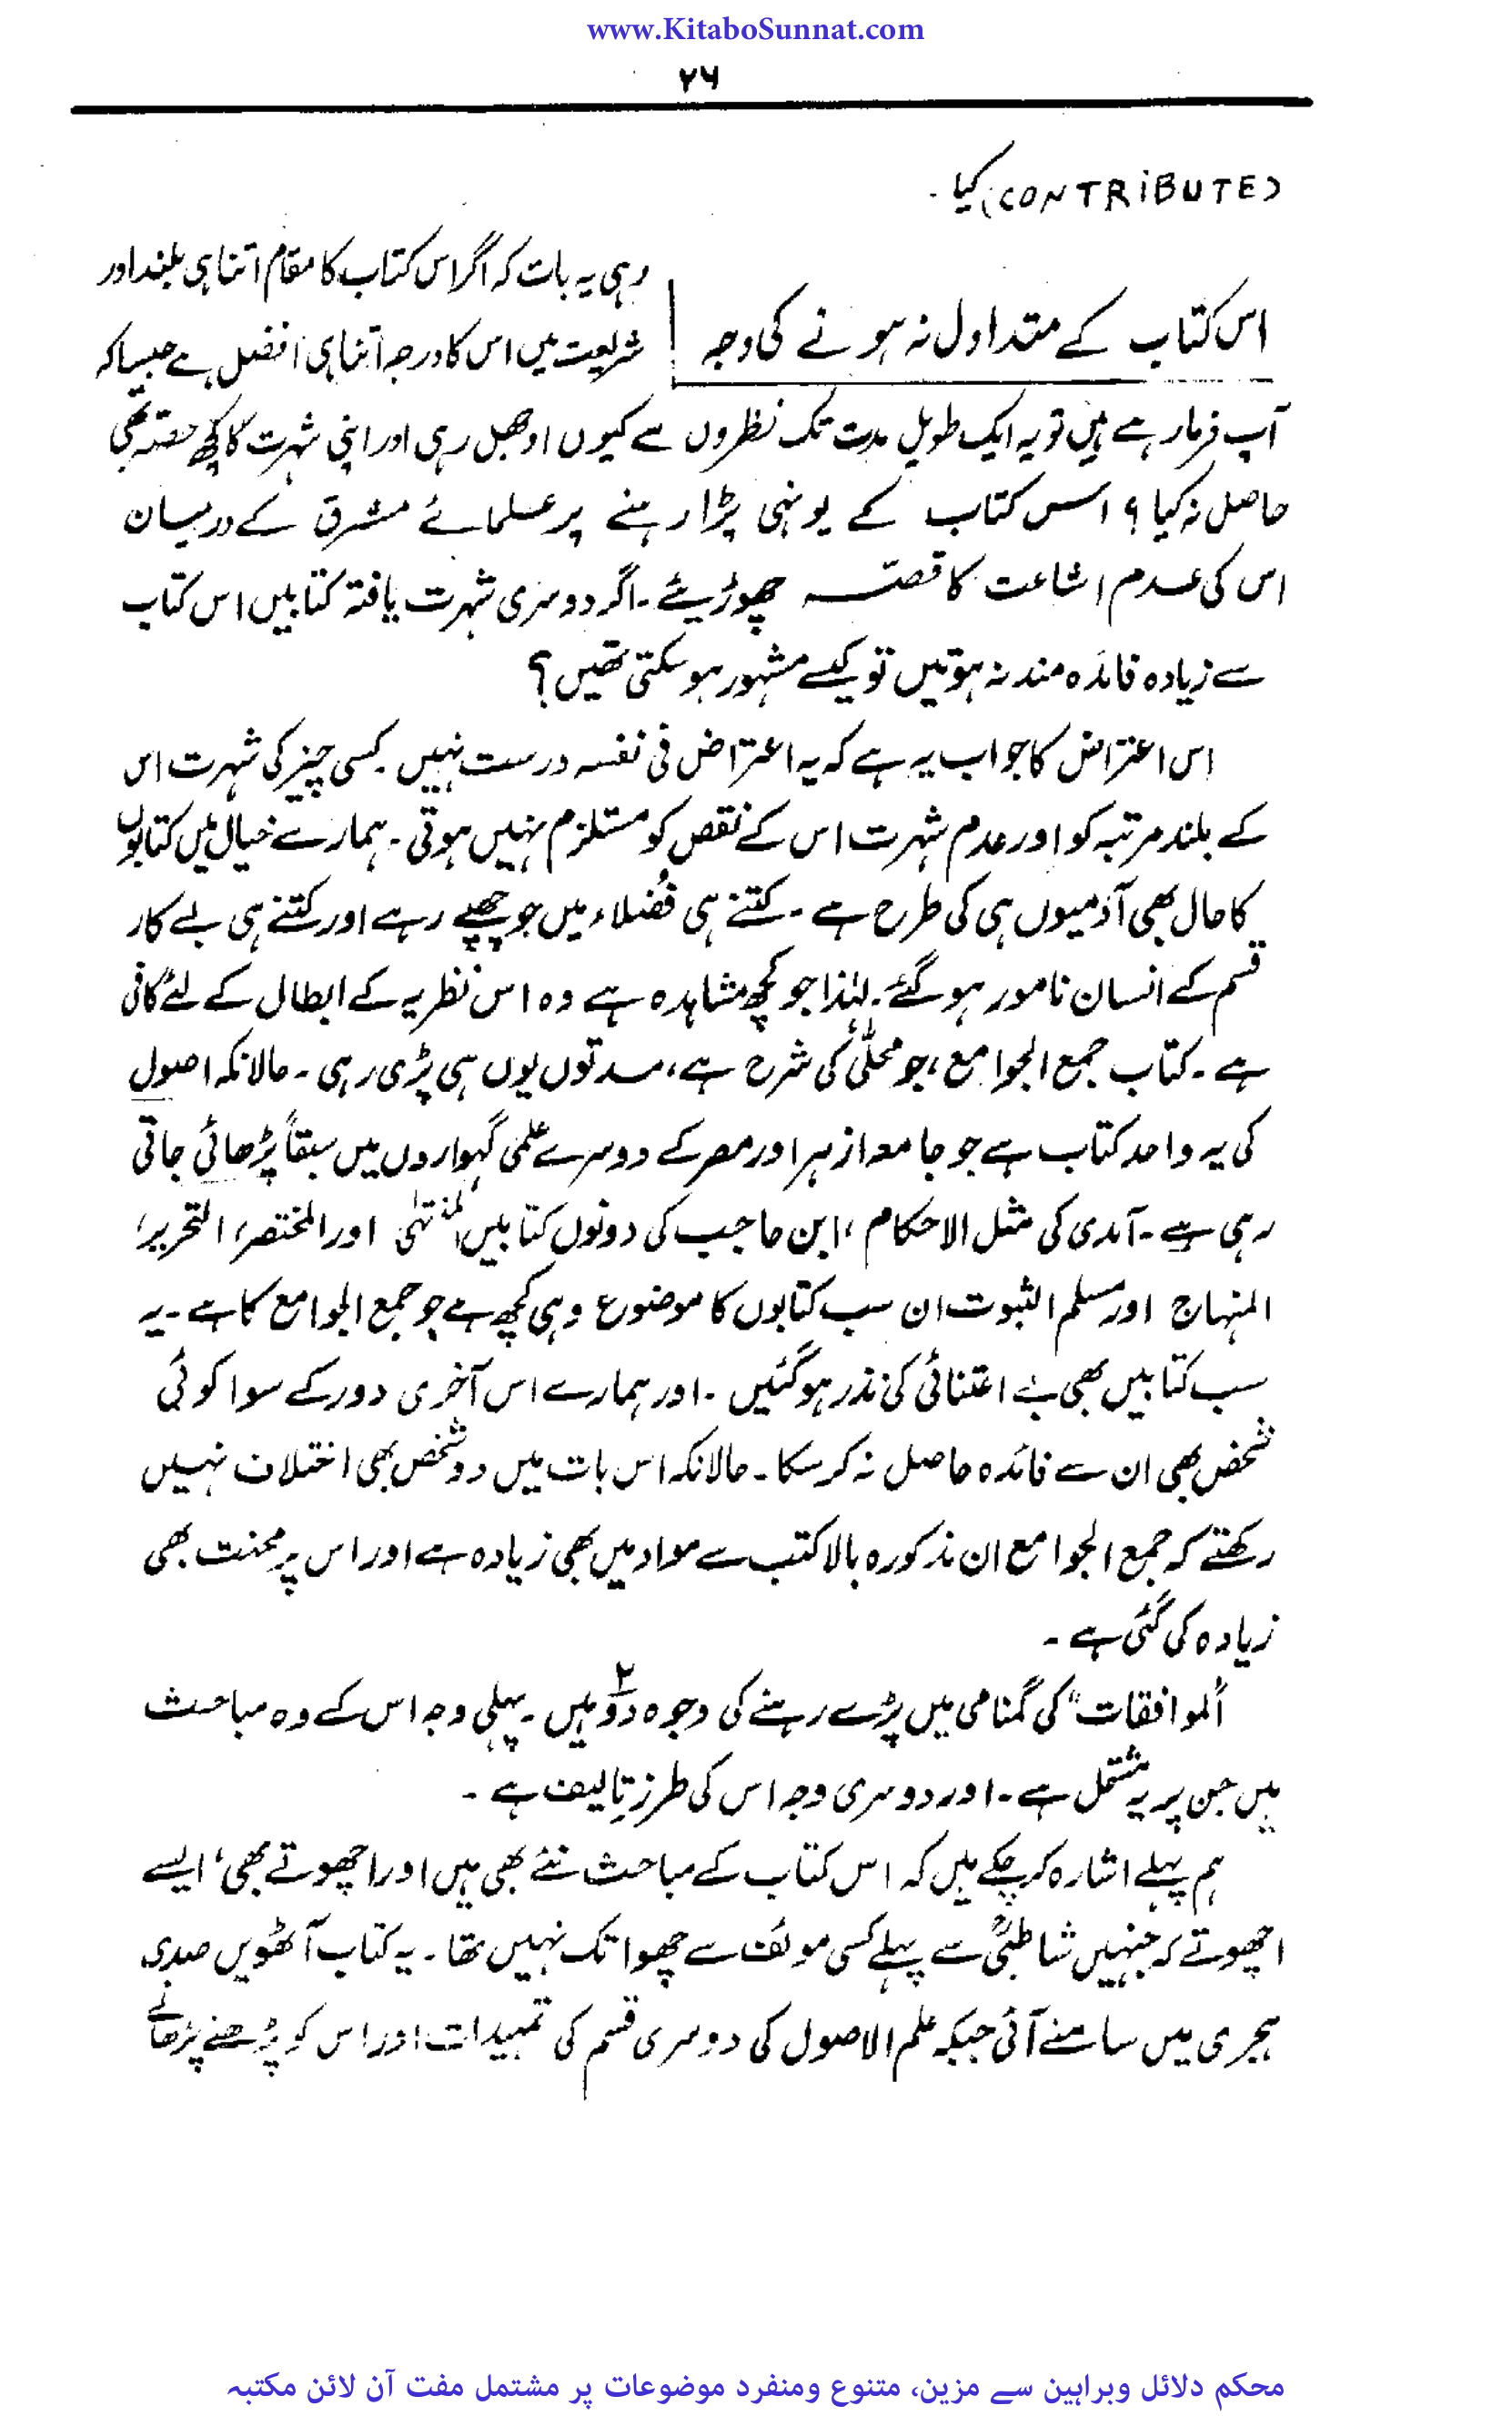 www.KitaboSunnat.com
۲۶
(CONTRiBUTE) کیا۔
اس کتاب کے متداول نہ ہونے کی وجہ
رہی یہ بات کہ اگر اس کتاب کا مقام اتنا ہی بلند اور
شریعت میں اس کا درجہ اتنا ہی افضل ہے جیسا کہ
آپ فرما رہے ہیں تو یہ ایک طویل مدت تک نظروں سے کیوں اوجھل رہی اور اپنی شہرت کا کچھ حصّہ بھی
حاصل نہ کیا؟ اس کتاب کے یونہی پڑا رہنے پر علمائے مشرق کے درمیان
اس کی عدم اشاعت کا قصّہ چھوڑیئے۔ اگر دوسری شہرت یافتہ کتابیں اس کتاب
سے زیادہ فائدہ مند نہ ہوتیں تو کیسے مشہور ہو سکتی تھیں؟
اس اعتراض کا جواب یہ ہے کہ یہ اعتراض فی نفسہ درست نہیں۔ کسی چیز کی شہرت اس
کے بلند مرتبہ کو اور عدم شہرت اس کے نقص کو مستلزم نہیں ہوتی۔ ہمارے خیال میں کتابوں
کا حال بھی آدمیوں ہی کی طرح ہے۔ کتنے ہی فُضلاء ہیں جو چھپے رہے اور کتنے ہی بے کار
قسم کے انسان نامور ہو گئے۔ لہٰذا جو کچھ مشاہدہ ہے وہ اس نظریہ کے ابطال کے لئے کافی
ہے۔ کتاب جمع الجوامع، جو محلّیٰ کی شرح ہے، مدتوں یوں ہی پڑی رہی۔ حالانکہ اصول
کی یہ واحد کتاب ہے جو جامعہ ازہر اور مصر کے دوسرے علمی گہواروں میں سبقاً پڑھائی جاتی
رہی ہے۔ آمدی کی مثل الاحکام، ابن حاجب کی دونوں کتابیں المنتہیٰ اور المختصر، التحریر،
المنہاج اور مسلم الثبوت ان سب کتابوں کا موضوع وہی کچھ ہے جو جمع الجوامع کا ہے۔ یہ
سب کتابیں بھی بے اعتنائی کی نذر ہو گئیں۔ اور ہمارے اس آخری دور کے سوا کوئی
شخص بھی ان سے فائدہ حاصل نہ کر سکا۔ حالانکہ اس بات میں دو شخص بھی اختلاف نہیں
رکھتے کہ جمع الجوامع ان مذکورہ بالا کتب سے مواد میں بھی زیادہ ہے اور اس پر محنت بھی
زیادہ کی گئی ہے۔
"الموافقات" کی گمنامی میں پڑے رہنے کی وجوہ دو۲ ہیں۔ پہلی وجہ اس کے وہ مباحث
ہیں جن پر یہ مشتمل ہے۔ اور دوسری وجہ اس کی طرزِ تالیف ہے۔
ہم پہلے اشارہ کر چکے ہیں کہ اس کتاب کے مباحث نئے بھی ہیں اور اچھوتے بھی، ایسے
اچھوتے کہ جنہیں شاطبیؒ سے پہلے کسی مولف سے چھوا تک نہیں تھا۔ یہ کتاب آٹھویں صدی
ہجری میں سامنے آئی جبکہ علم الاصول کی دوسری قسم کی تمہیدات اور اس کو پڑھنے پڑھانے
محکم دلائل وبراہین سے مزین، متنوع ومنفرد موضوعات پر مشتمل مفت آن لائن مکتبہ